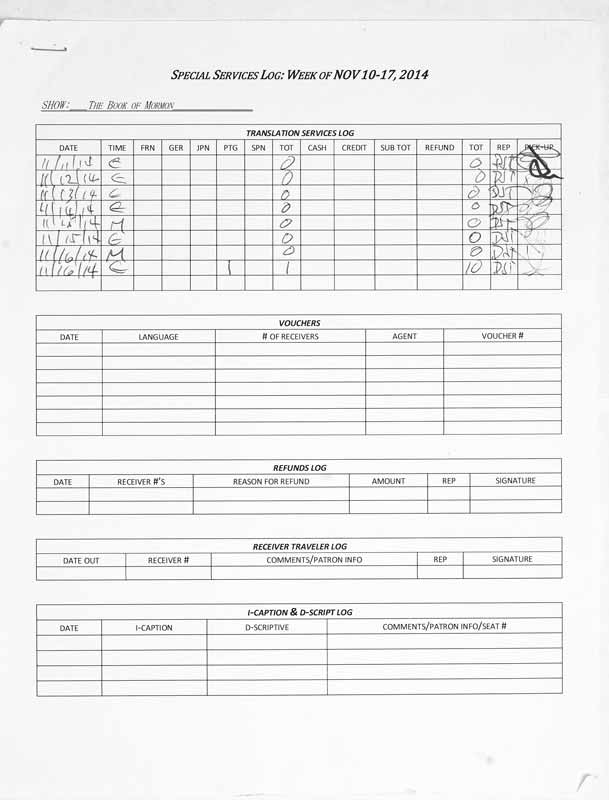 SPECIAL SERVICES LOG: WEEK OF NOV 10-17, 2014
SHOW: THE BOOK OF MORMON
TRANSLATION SERVICES LOG
DATE TIME FRN GER JPN PTG SPN TOT CASH CREDIT SUB TOT REFUND TOT REP PICK-UP
11/11/14 E 0 0 DST
11/12/14 E 0 0 DST
11/13/14 E 0 0 DST
11/14/14 E 0 0 DST
11/15/14 M 0 0 DST
11/15/14 E 0 0 DST
11/16/14 M 0 0 DST
11/16/14 E 1 1 10 DST
VOUCHERS
DATE LANGUAGE # OF RECEIVERS AGENT VOUCHER #
REFUNDS LOG
DATE RECEIVER #'S REASON FOR REFUND AMOUNT REP SIGNATURE
RECEIVER TRAVELER LOG
DATE OUT RECEIVER # COMMENTS/PATRON INFO REP SIGNATURE
I-CAPTION & D-SCRIPT LOG
DATE I-CAPTION D-SCRIPTIVE COMMENTS/PATRON INFO/SEAT #